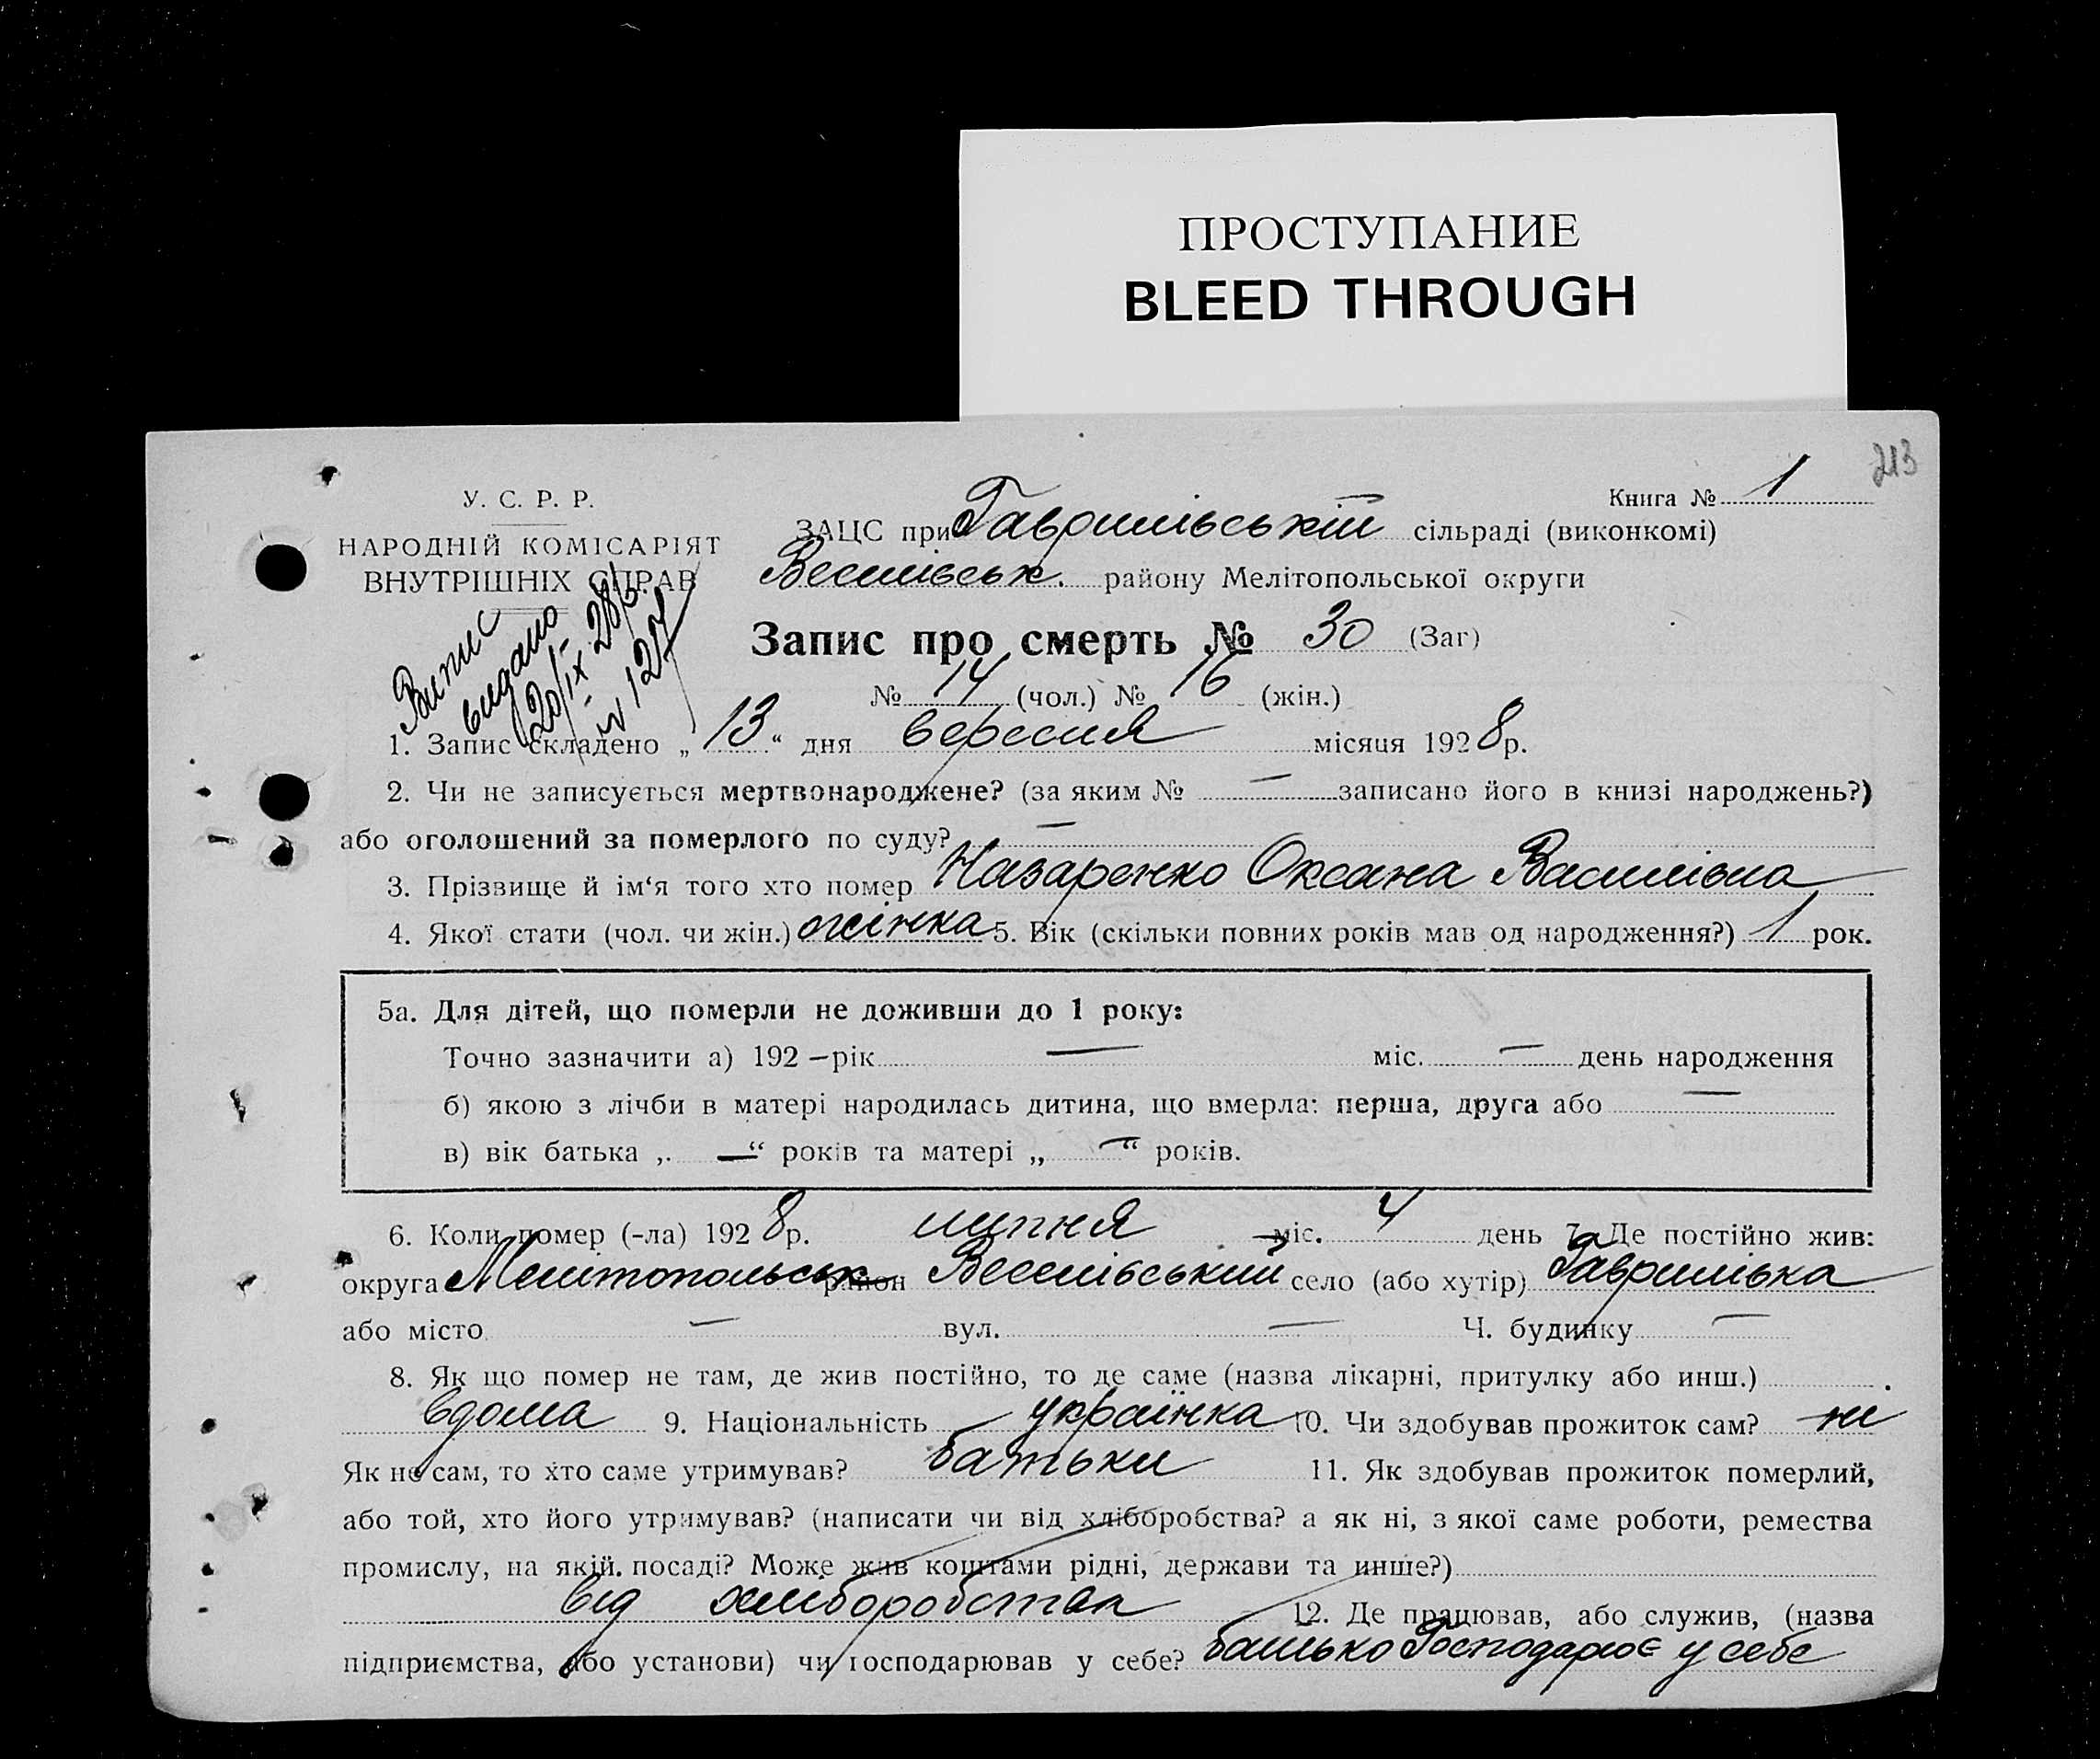 ПРОСТУПАНИЕ
BLEED THROUGH
213
Книга № 1
У. С. Р. Р.
НАРОДНІЙ КОМІСАРІЯТ
ВНУТРІШНІХ СПРАВ
ЗАЦС при Гаврилівській сільраді (виконкомі)
Веселівськ. району Мелітопольської округи
Випис
видано
20/IX 28 р.
№ 127
Запис про смерть № 30 (Заг)
№ 14 (чол.) № 16 (жін.)
1. Запис складено „ 13 “ дня вересня місяця 1928 р.
2. Чи не записується мертвонароджене? (за яким № — записано його в книзі народжень?)
або оголошений за померлого по суду? —
3. Прізвище й ім‘я того хто помер Назаренко Оксана Василівна
4. Якої стати (чол. чи жін.) жінка 5. Вік (скільки повних років мав од народження?) 1 рок.
5а. Для дітей, що померли не доживши до 1 року:
Точно зазначити а) 192 — рік — міс. — день народження
б) якою з лічби в матері народилась дитина, що вмерла: перша, друга або —
в) вік батька „ — “ років та матері „ — “ років.
6. Коли помер (-ла) 1928 р. липня міс. 4 день 7. Де постійно жив:
округа Мелітопольськ район Веселівський село (або хутір) Гаврилівка
або місто — вул. — Ч. будинку —
8. Як що помер не там, де жив постійно, то де саме (назва лікарні, притулку або инш.)
вдома 9. Національність українка 10. Чи здобував прожиток сам? ні
Як не сам, то хто саме утримував? батьки 11. Як здобував прожиток померлий,
або той, хто його утримував? (написати чи від хліборобства? а як ні, з якої саме роботи, ремества
промислу, на якій. посаді? Може жив коштами рідні, держави та инше?)
від хліборобства 12. Де працював, або служив, (назва
підприємства, або установи) чи господарював у себе? батько Господарює у себе